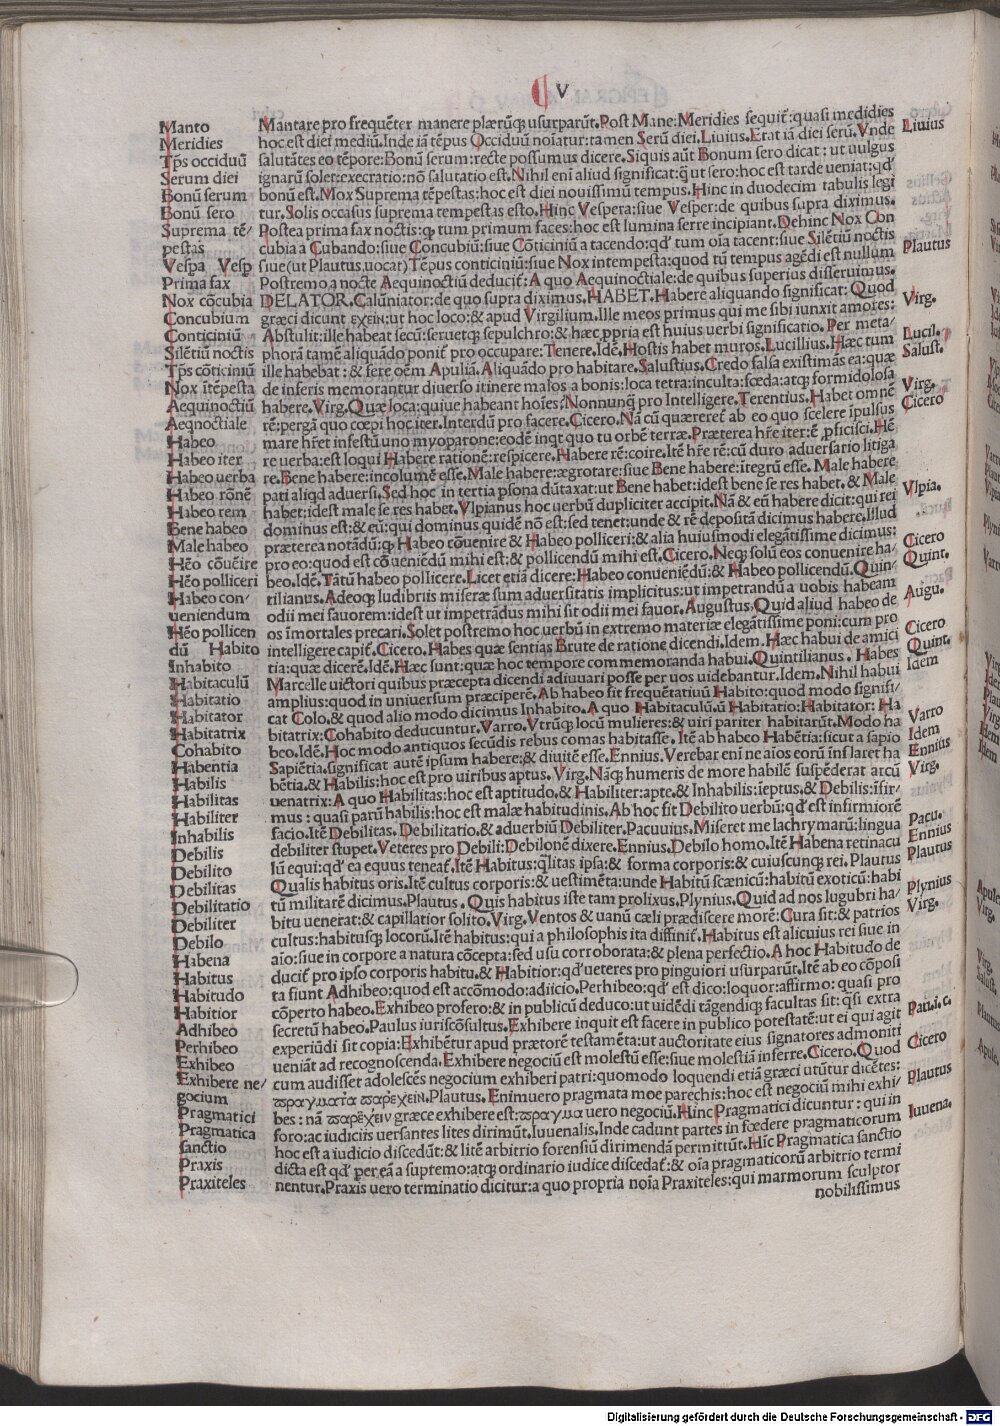 V
Manto
Meridies
Tp̄s occiduū
Serum diei
Bonū serum
Bonū sero
Suprema tē/
pestas
Vespa Vesp
Prima fax
Nox cōcubia
Concubium
Conticiniū
Silētiū noctis
Tp̄s cōticiniū
Nox ītēpesta
Aequinoctiū
Aeqnoctiale
Habeo
Habeo iter
Habeo uerba
Habeo rōnē
Habeo rem
Bene habeo
Male habeo
Hēo cōuēire
Hēo polliceri
Habeo con/
ueniendum
Hēo pollicen
dū Habito
Inhabito
Habitaculū
Habitatio
Habitator
Habitatrix
Cohabito
Habentia
Habilis
Habilitas
Habiliter
Inhabilis
Debilis
Debilito
Debilitas
Debilitatio
Debiliter
Debilo
Habena
Habitus
Habitudo
Habitior
Adhibeo
Perhibeo
Exhibeo
Exhibere ne/
gocium
Pragmatici
Pragmatica
sanctio
Praxis
Praxiteles
Mantare pro frequēter manere plærūq; usurparūt. Post Mane: Meridies sequit̄: quasi medidies
hoc est diei mediū. Inde iā tēpus Occiduū noīatur: tamen Serū diei. Liuius. Erat iā diei serū. Vnde
salutātes eo tēpore: Bonū serum: recte possumus dicere. Siquis aūt Bonum sero dicat: ut uulgus
ignarū solet: execratio: nō salutatio est. Nihil enī aliud significat: q̄ ut sero: hoc est tarde ueniat: qd̄
bonū est. Mox Suprema tēpestas: hoc est diei nouissimū tempus. Hinc in duodecim tabulis legi
tur. Solis occasus suprema tempestas esto. Hinc Vespera: siue Vesper: de quibus supra diximus.
Postea prima fax noctis: q; tum primum faces: hoc est lumina ferre incipiant. Dehinc Nox Con
cubia a Cubando: siue Concubiū: siue Cōticiniū a tacendo: qd̄ tum oīa tacent: siue Silētiū noctis
siue (ut Plautus uocat) Tēpus conticiniū: siue Nox intempesta: quod tū tempus agēdi est nullum
Postremo a nocte Aequinoctiū deducit̄: A quo Aequinoctiale: de quibus superius disseruimus.
DELATOR. Calūniator: de quo supra diximus. HABET. Habere aliquando significat: Quod
græci dicunt εχειν: ut hoc loco: & apud Virgilium. Ille meos primus qui me sibi iunxit amores:
Abstulit: ille habeat secū: seruetq; sepulchro: & hæc ppria est huius uerbi significatio. Per meta/
phorā tamē aliquādo ponit̄ pro occupare: Tenere. Idē. Hostis habet muros. Lucillius. Hæc tum
ille habebat: & fere oēm Apuliā. Aliquādo pro habitare. Salustius. Credo falsa existimās ea: quæ
de inferis memorantur diuerso itinere malos a bonis: loca tetra: inculta: fœda: atq; formidolosa
habere. Virg. Quæ loca: quiue habeant hoīes; Nonnunq̄ pro Intelligere. Terentius. Habet omnē
rē: pergā quo cœpi hoc iter. Interdū pro facere. Cicero. Nā cū quæreret̄ ab eo quo scelere īpulsus
mare hr̄et infestū uno myoparone: eodē inqt quo tu orbē terræ. Præterea hr̄e iter: ē proficisci. Hē
re uerba: est loqui Habere rationē: respicere. Habere rē: coire. Itē hr̄e rē: cū duro aduersario litiga
re. Bene habere: incolumē esse. Male habere: ægrotare: siue Bene habere: itegrū esse. Male habere
pati aliqd aduersi. Sed hoc in tertia psona dūtaxat: ut Bene habet: idest bene se res habet. & Male
habet: idest male se res habet. Vlpianus hoc uerbū dupliciter accipit. Nā & eū habere dicit: qui rei
dominus est: & eū: qui dominus quidē nō est: sed tenet: unde & rē depositā dicimus habere. Illud
præterea notādū: q; Habeo cōuenire & Habeo polliceri: & alia huiusmodi elegātissime dicimus:
pro eo: quod est cōueniēdū mihi est: & pollicendū mihi est. Cicero. Neq; solū eos conuenire ha/
beo. Idē. Tātū habeo pollicere. Licet etiā dicere: Habeo conueniēdū: & Habeo pollicendū. Quin/
tilianus. Adeoq; ludibriis miseræ sum aduersitatis implicitus: ut impetrandū a uobis habeam
odii mei fauorem: idest ut impetrādus mihi sit odii mei fauor. Augustus. Quid aliud habeo de
os īmortales precari. Solet postremo hoc uerbū in extremo materiæ elegātissime poni: cum pro
intelligere capit̄. Cicero. Habes quæ sentias Brute de ratione dicendi. Idem. Hæc habui de amici
tia: quæ dicerē. Idē. Hæc sunt: quæ hoc tempore commemoranda habui. Quintilianus. Habes
Marcelle uictori quibus præcepta dicendi adiuuari posse per uos uidebantur. Idem. Nihil habui
amplius: quod in uniuersum præciperē. Ab habeo fit frequētatiuū Habito: quod modo signifi/
cat Colo. & quod alio modo dicimus Inhabito. A quo Habitaculū. ū Habitatio: Habitator: Ha
bitatrix: Cohabito deducuntur. Varro. Vtrūq; locū mulieres: & uiri pariter habitarūt. Modo ha
beo. Idē. Hoc modo antiquos secūdis rebus comas habitasse. Itē ab habeo Habētia: sicut a sapio
Sapiētia. significat autē ipsum habere: & diuitē esse. Ennius. Verebar eni ne aīos eorū īnflaret ha
bētia. & Habilis: hoc est pro uiribus aptus. Virg. Nāq; humeris de more habilē suspēderat arcū
uenatrix: A quo Habilitas: hoc est aptitudo. & Habiliter: apte. & Inhabilis: īeptus. & Debilis: īfir/
mus: quasi parū habilis: hoc est malæ habitudinis. Ab hoc fit Debilito uerbū: qd̄ est infirmiorē
facio. Itē Debilitas. Debilitatio. & aduerbiū Debiliter. Pacuuius. Miseret me lachrymarū: lingua
debiliter stupet. Veteres pro Debili: Debilonē dixere. Ennius. Debilo homo. Itē Habena retinacu
lū equi: qd̄ ea equus teneat̄. Itē Habitus: qlitas ipsa: & forma corporis: & cuiuscunq; rei. Plautus
Qualis habitus oris. Itē cultus corporis: & uestimēta: unde Habitū scænicū: habitū exoticū: habi
tū militarē dicimus. Plautus. Quis habitus iste tam prolixus. Plynius. Quid ad nos lugubri ha/
bitu uenerat: & capillatior solito. Virg. Ventos & uanū cæli prædiscere morē: Cura sit: & patrios
cultus: habitusq; locorū. Itē habitus: qui a philosophis ita diffinit̄. Habitus est alicuius rei siue in
aīo: siue in corpore a natura cōcepta: sed usu corroborata: & plena perfectio. A hoc Habitudo de
ducit̄ pro ipso corporis habitu. & Habitior: qd̄ ueteres pro pinguiori usurparūt. Itē ab eo cōposi
ta fiunt Adhibeo: quod est accōmodo: adiicio. Perhibeo: qd̄ est dico: loquor: affirmo: quasi pro
cōperto habeo. Exhibeo profero: & in publicū deduco: ut uidēdi tāgendiq; facultas sit: qsi extra
secretū habeo. Paulus iuriscōsultus. Exhibere inquit est facere in publico potestatē: ut ei qui agit
experiūdi sit copia: Exhibētur apud prætorē testamēta: ut auctoritate eius signatores admoniti
ueniāt ad recognoscenda. Exhibere negociū est molestū esse: siue molestiā inferre. Cicero. Quod
cum audisset adolescēs negocium exhiberi patri: quomodo loquendi etiā græci utūtur dicētes:
ϖραγματα ϖαρεχειν. Plautus. Enimuero pragmata moe parechis: hoc est negociū mihi exhi/
bes: nā ϖαρεχειν græce exhibere est: ϖραγμα uero negociū. Hinc Pragmatici dicuntur: qui in
foro: ac iudiciis uersantes lites dirimūt. Iuuenalis. Inde cadunt partes in fœdere pragmaticorum
hoc est a iudicio discedūt: & litē arbitrio forensiū dirimendā permittūt. Hīc Pragmatica sanctio
dicta est qd̄ per eā a supremo: atq; ordinario iudice discedat̄: & oīa pragmaticorū arbitrio termi
nentur. Praxis uero terminatio dicitur: a quo propria noīa Praxiteles: qui marmorum sculptor
nobilissimus
Liuius
Plautus
Virg.
Lucil.
Salust.
Virg.
Cicero
Vlpia.
Cicero
Quint.
Augu.
Cicero
Quint.
Idem
Varro
Idem
Ennius
Virg.
Pacu.
Ennius
Plautus
Plynius
Virg.
Pau.i.c.
Cicero
Plautus
Iuuena.
Digitalisierung gefördert durch die Deutsche Forschungsgemeinschaft - DFG